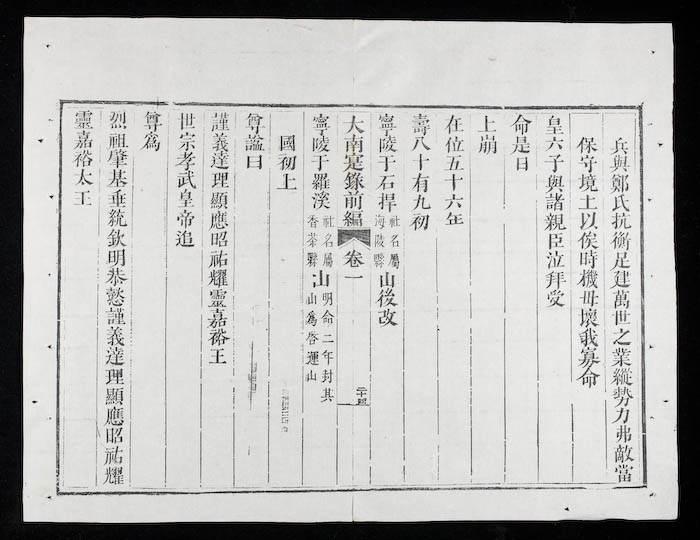 兵與鄭氏抗衡足建萬世之業縱勢力弗敵當
保守境土以俟時機毋壞我寡命
皇六子與諸親臣泣拜受
命是日
上崩
在位五十六年
壽八十有九初
寧陵于石捍社名屬海陵縣山後改
大南寔錄前編 卷一 二十四
寧陵于羅溪社名屬香茶縣山明命二年封其山為啓運山
國初上
尊謚曰
謹義達理顯應昭祐耀靈嘉裕王
世宗孝武皇帝追
尊為
烈祖肇基垂統欽明恭懿謹義達理顯應昭祐耀
靈嘉裕太王